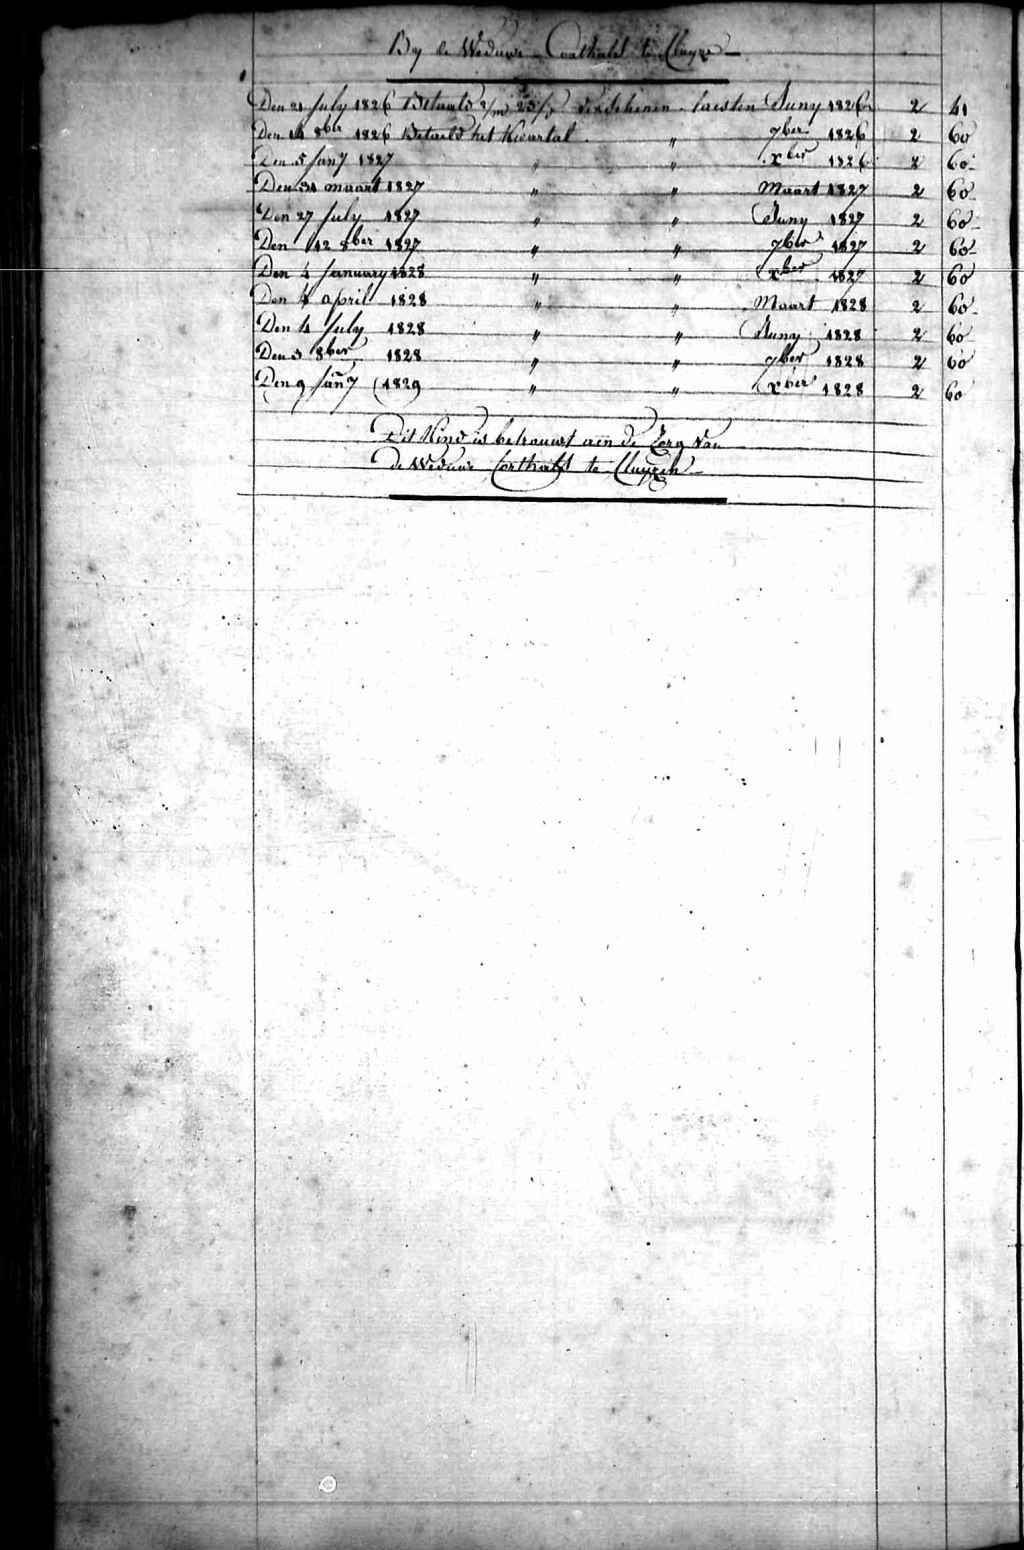 By de Weduwe Corthals te Cluyze
Den 21 July 1826 Betaald 2/m 23/d verschenen laesten Juny 1826 2 41
Den 14 8ber 1826 Betaeld het Kwartal " 7ber 1826 2 60
Den 5 Jany 1827 " " xber 1826 2 60
Den 31 maart 1827 " " Maart 1827 2 60
Den 27 July 1827 " " Juny 1827 2 60
Den 12 8ber 1827 " " 7ber 1827 2 60
Den 4 January 1828 " " xber 1827 2 60
Den 4 april 1828 " " Maart 1828 2 60
Den 4 July 1828 " " Juny 1828 2 60
Den 3 8ber 1828 " " 7ber 1828 2 60
Den 9 Jany 1829 " " xber 1828 2 60
Dit Kind is betrouwt aen de Zorg van
de Weduwe Corthals te Cluyzen